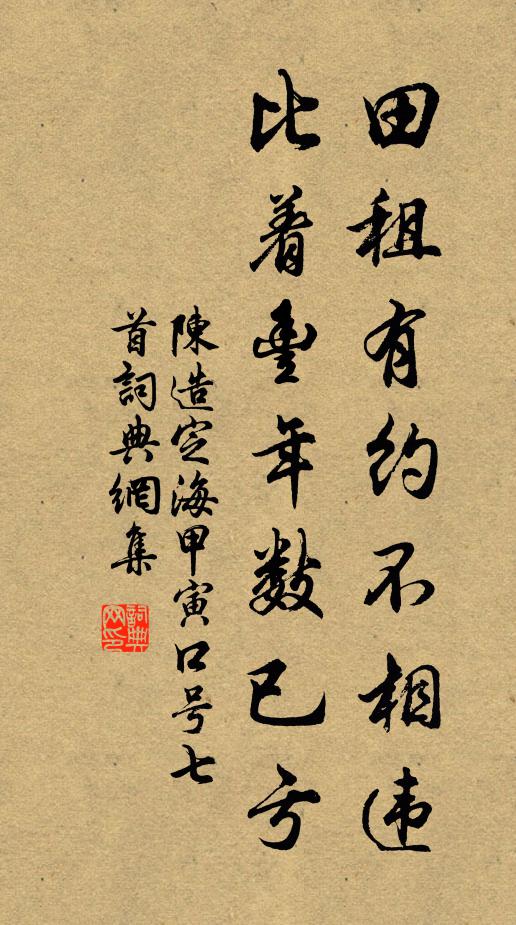 田租有约不相违
比着豊年数已亏
陳造定海甲寅口号七
首詞典網集
詞典网印